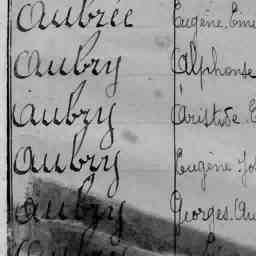 Aubrée Eugène
Aubry Alphonse
Aubry Aristide
Aubry Eugène
Aubry Georges
Aubry